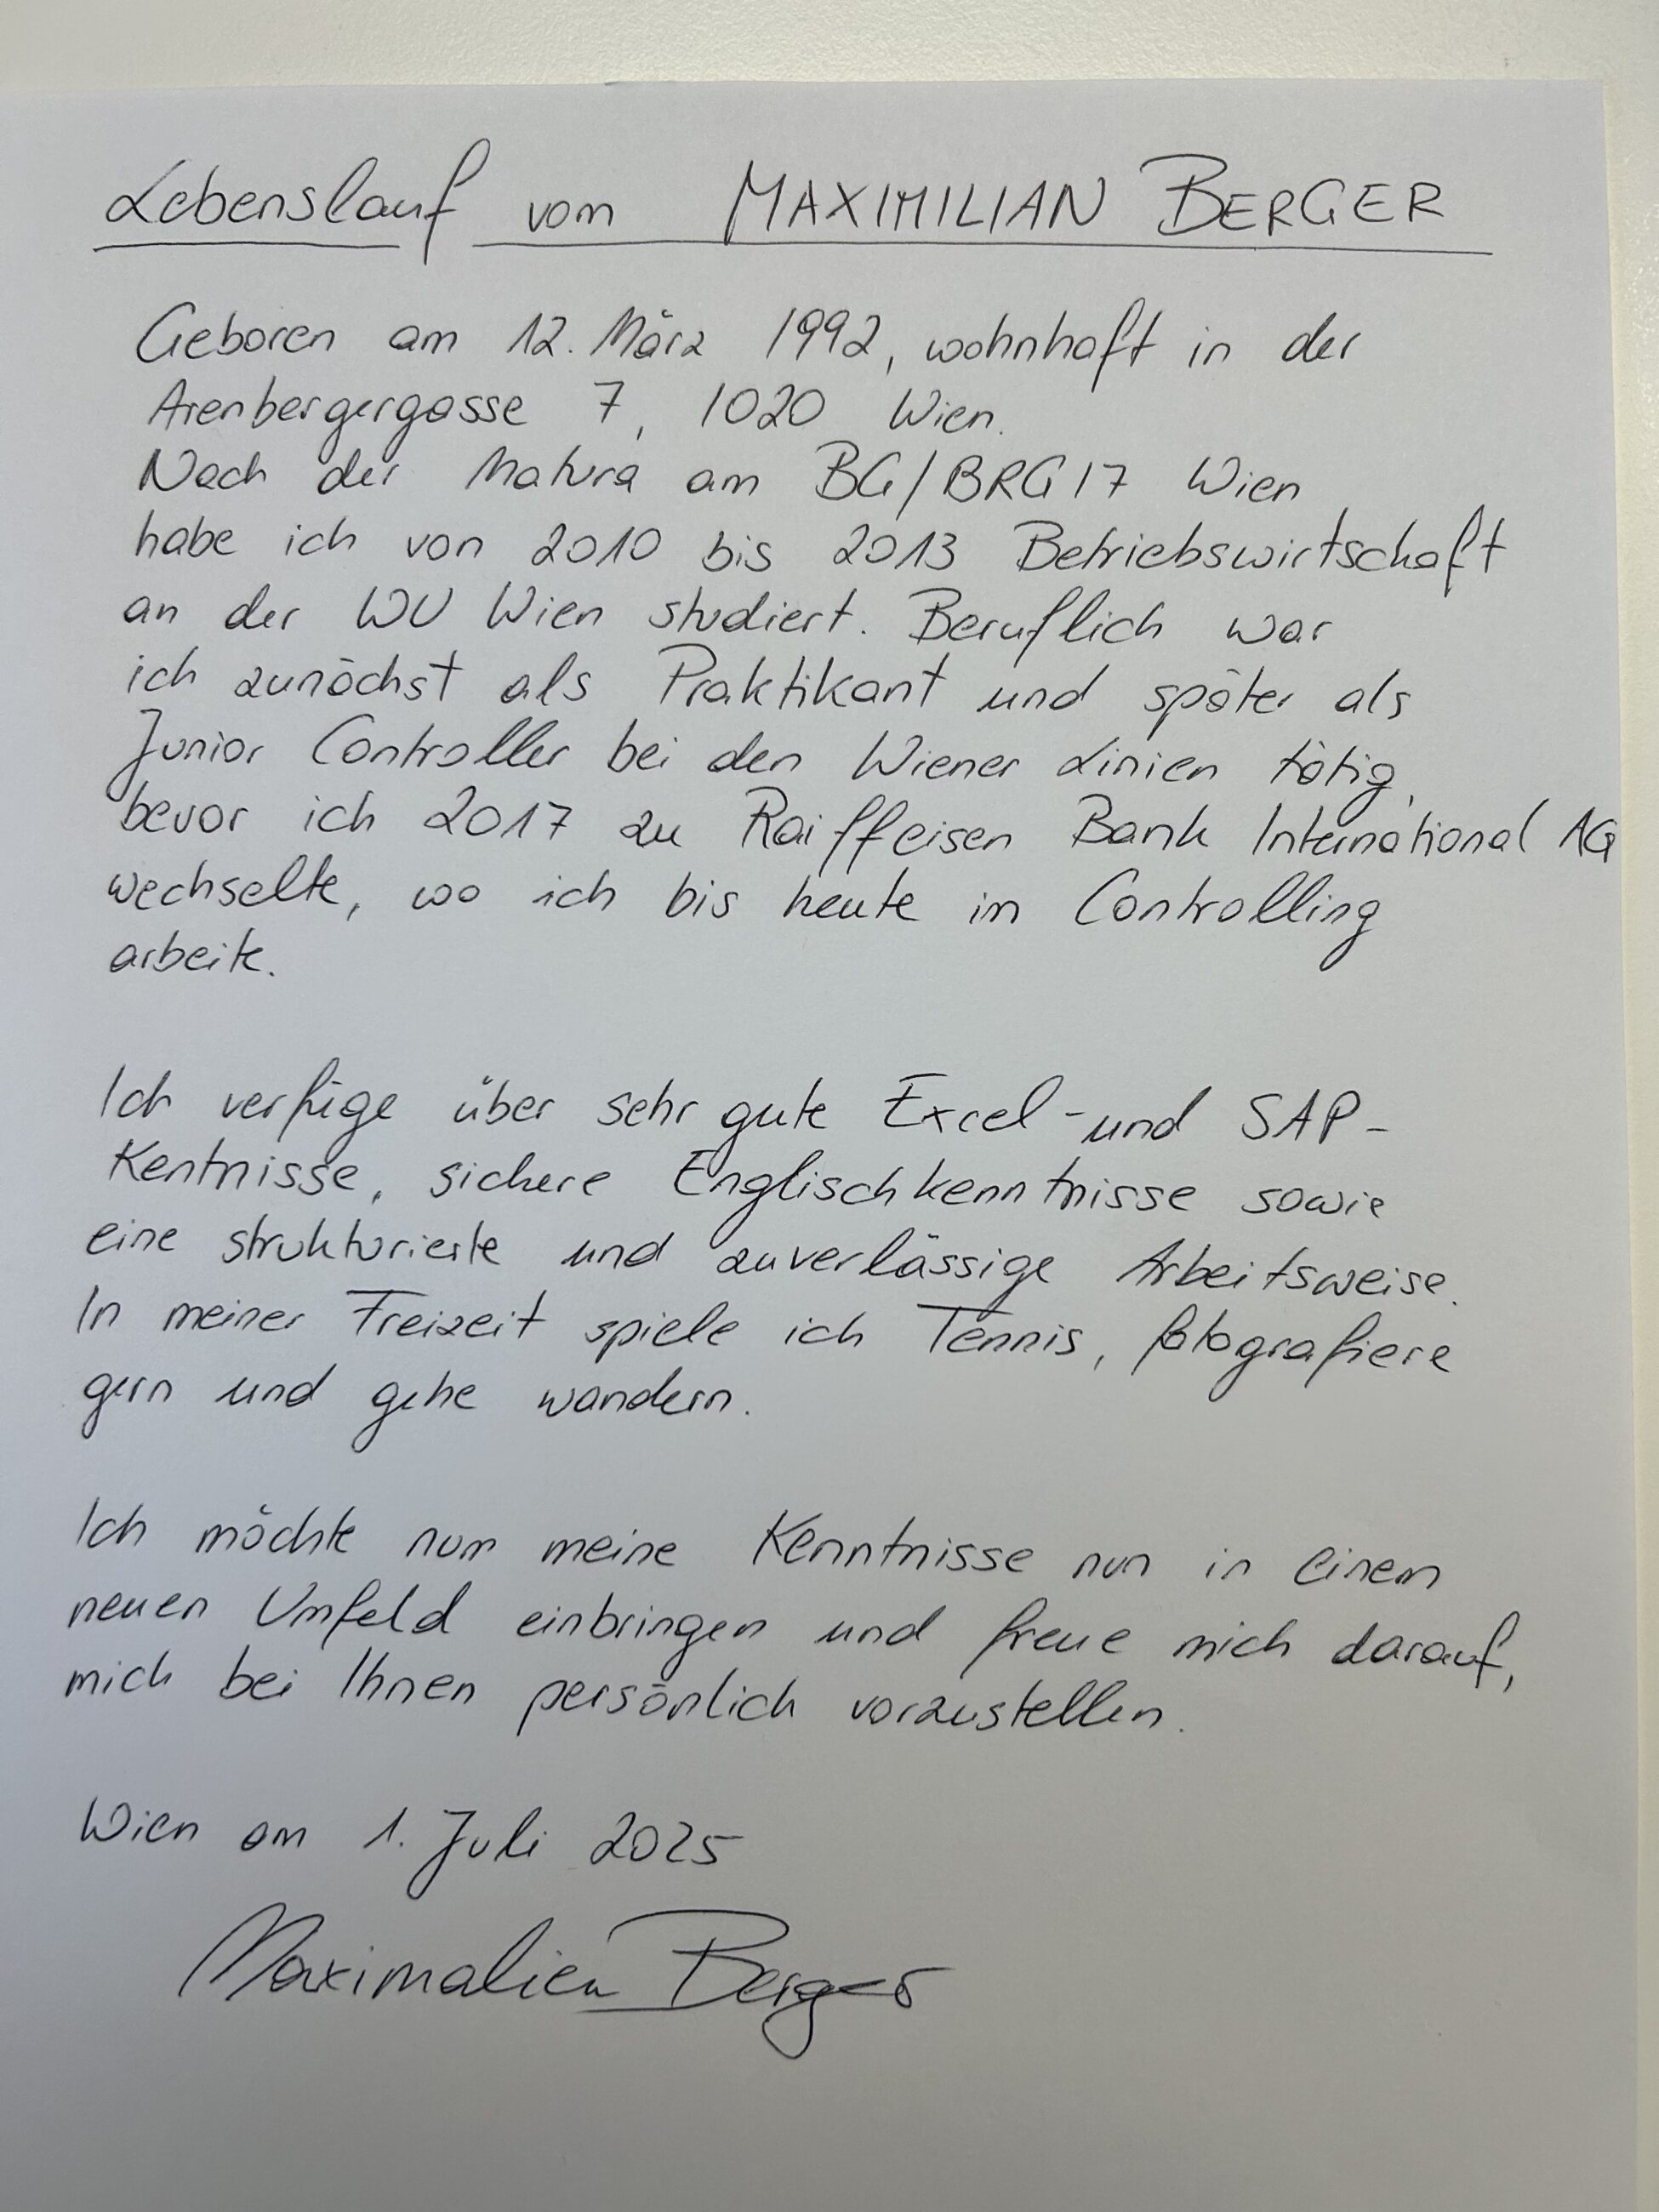 Lebenslauf vom MAXIMILIAN BERGER
Geboren am 12. März 1992, wohnhaft in der
Arenbergergasse 7, 1020 Wien.
Nach der Matura am BG/BRG 17 Wien
habe ich von 2010 bis 2013 Betriebswirtschaft
an der WU Wien studiert. Beruflich war
ich zunächst als Praktikant und später als
Junior Controller bei den Wiener Linien tätig,
bevor ich 2017 zu Raiffeisen Bank International AG
wechselte, wo ich bis heute im Controlling
arbeite.
Ich verfüge über sehr gute Excel- und SAP-
Kentnisse, sichere Englischkenntnisse sowie
eine strukturierte und zuverlässige Arbeitsweise.
In meiner Freizeit spiele ich Tennis, fotografiere
gern und gehe wandern.
Ich möchte nun meine Kenntnisse nun in einem
neuen Umfeld einbringen und freue mich darauf,
mich bei Ihnen persönlich vorzustellen.
Wien am 1. Juli 2025
Maximalien Berger